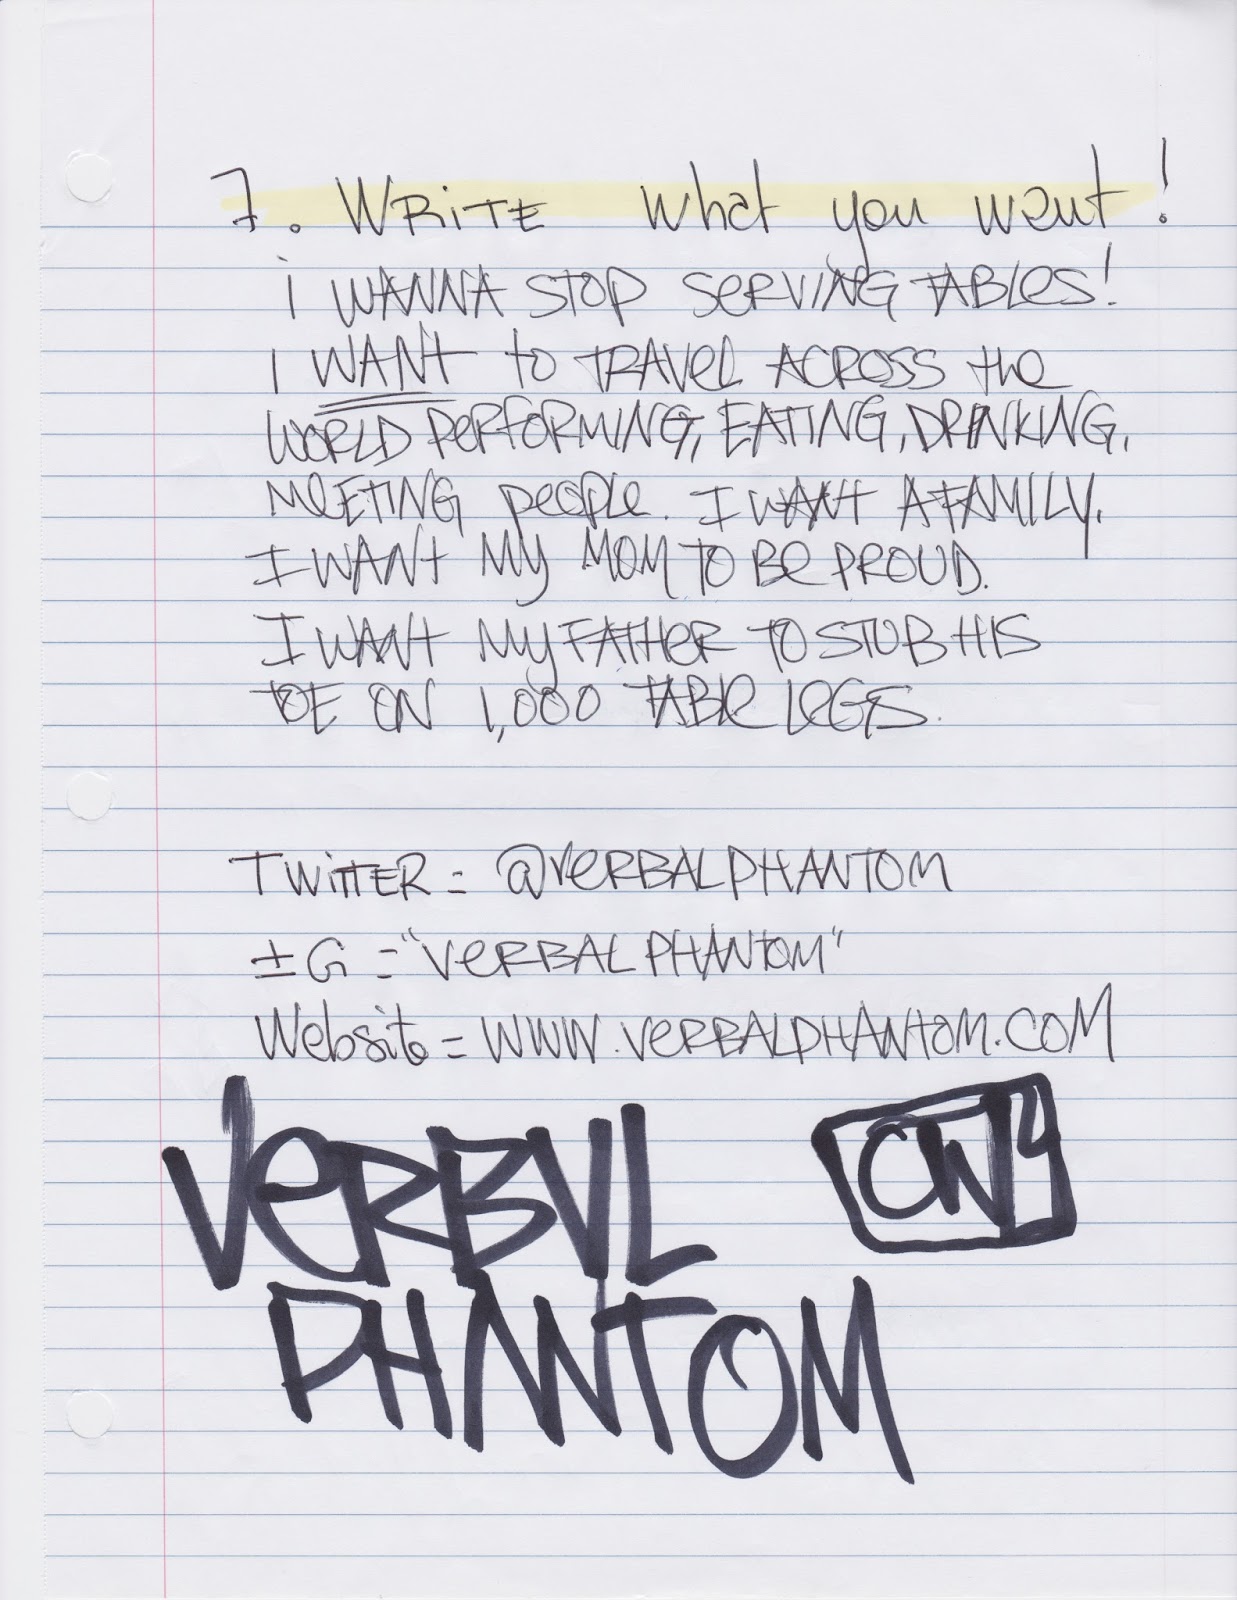 7. WRITE what you want!
i WANNA STOP SERVING TABLES!
I WANT to TRAVEL ACROSS the
WORLD PERFORMING, EATING, DRINKING,
MEETING people. I WANT A FAMILY.
I WANT MY MOM TO BE PROUD.
I WANT MY FATHER TO STUB HIS
TOE ON 1,000 TABLE LEGS.
TWITTER = @VERBALPHANTOM
±G = "VERBAL PHANTOM"
Website = WWW.VERBALPHANTOM.COM
VERBAL
PHANTOM